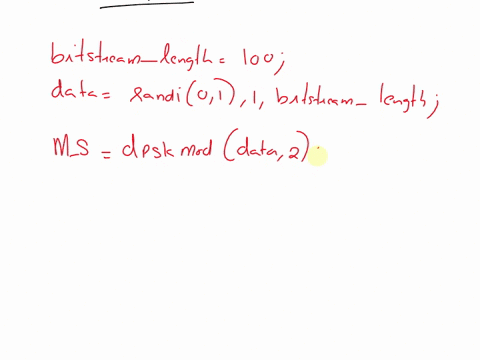 bitstream_length = 100;
data = randi(0,1), 1, bitstream_length;
M_S = dpskmod (data, 2);